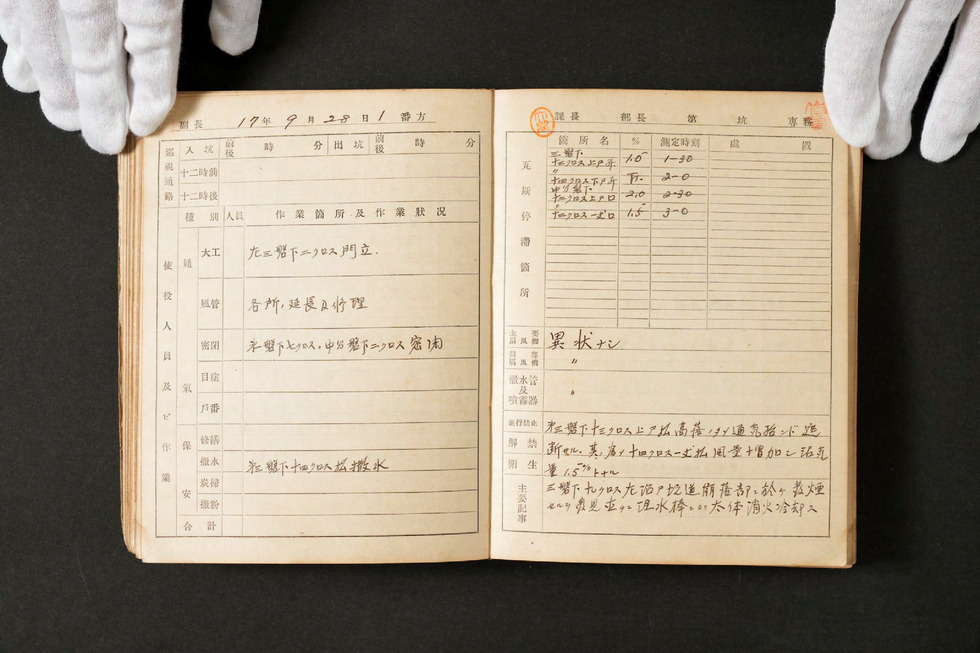 副長 17年 9月 28日 1 番方
巡視通路 入坑 前後 時 分 出坑 前後 時 分
十二時前
十二時後
使役人員及ビ作業 種別 人員 作業箇所及作業状況
通氣
大工 左三盤下ニクロス門立.
風管 各所、延長及修理
密閉 中分盤下ニクロス密閉
目塗
戸番
保安
修繕
撒水 十四クロス払撒水
炭掃
撒粉
合計
課長 部長 第 坑 専務
瓦斯停滞箇所 箇所名 % 測定時刻 處置
三盤下
十三クロス上ア 1.5 1-30
〃
十四クロス下ア 2-0
中分盤下
十二クロス上ア口 2.0 2-30
〃
十三クロス一丈口 1.5 3-0
主要扇風機 異状ナシ
局部扇風機 〃
撒水管及噴霧器 〃
通行禁止
解禁
衛生
三盤下十三クロス上ア払高落ノタメ通気殆ンド遮
断セル、其ノ為メ十四クロス一丈払風量ヲ増加シ沼気
量1.5%トナル
主要記事
三盤下九クロス左沿ア坑道崩落部ニ於テ発煙
セルヲ発見 並ニ注水棒ニヨリ大体消火冷却ス